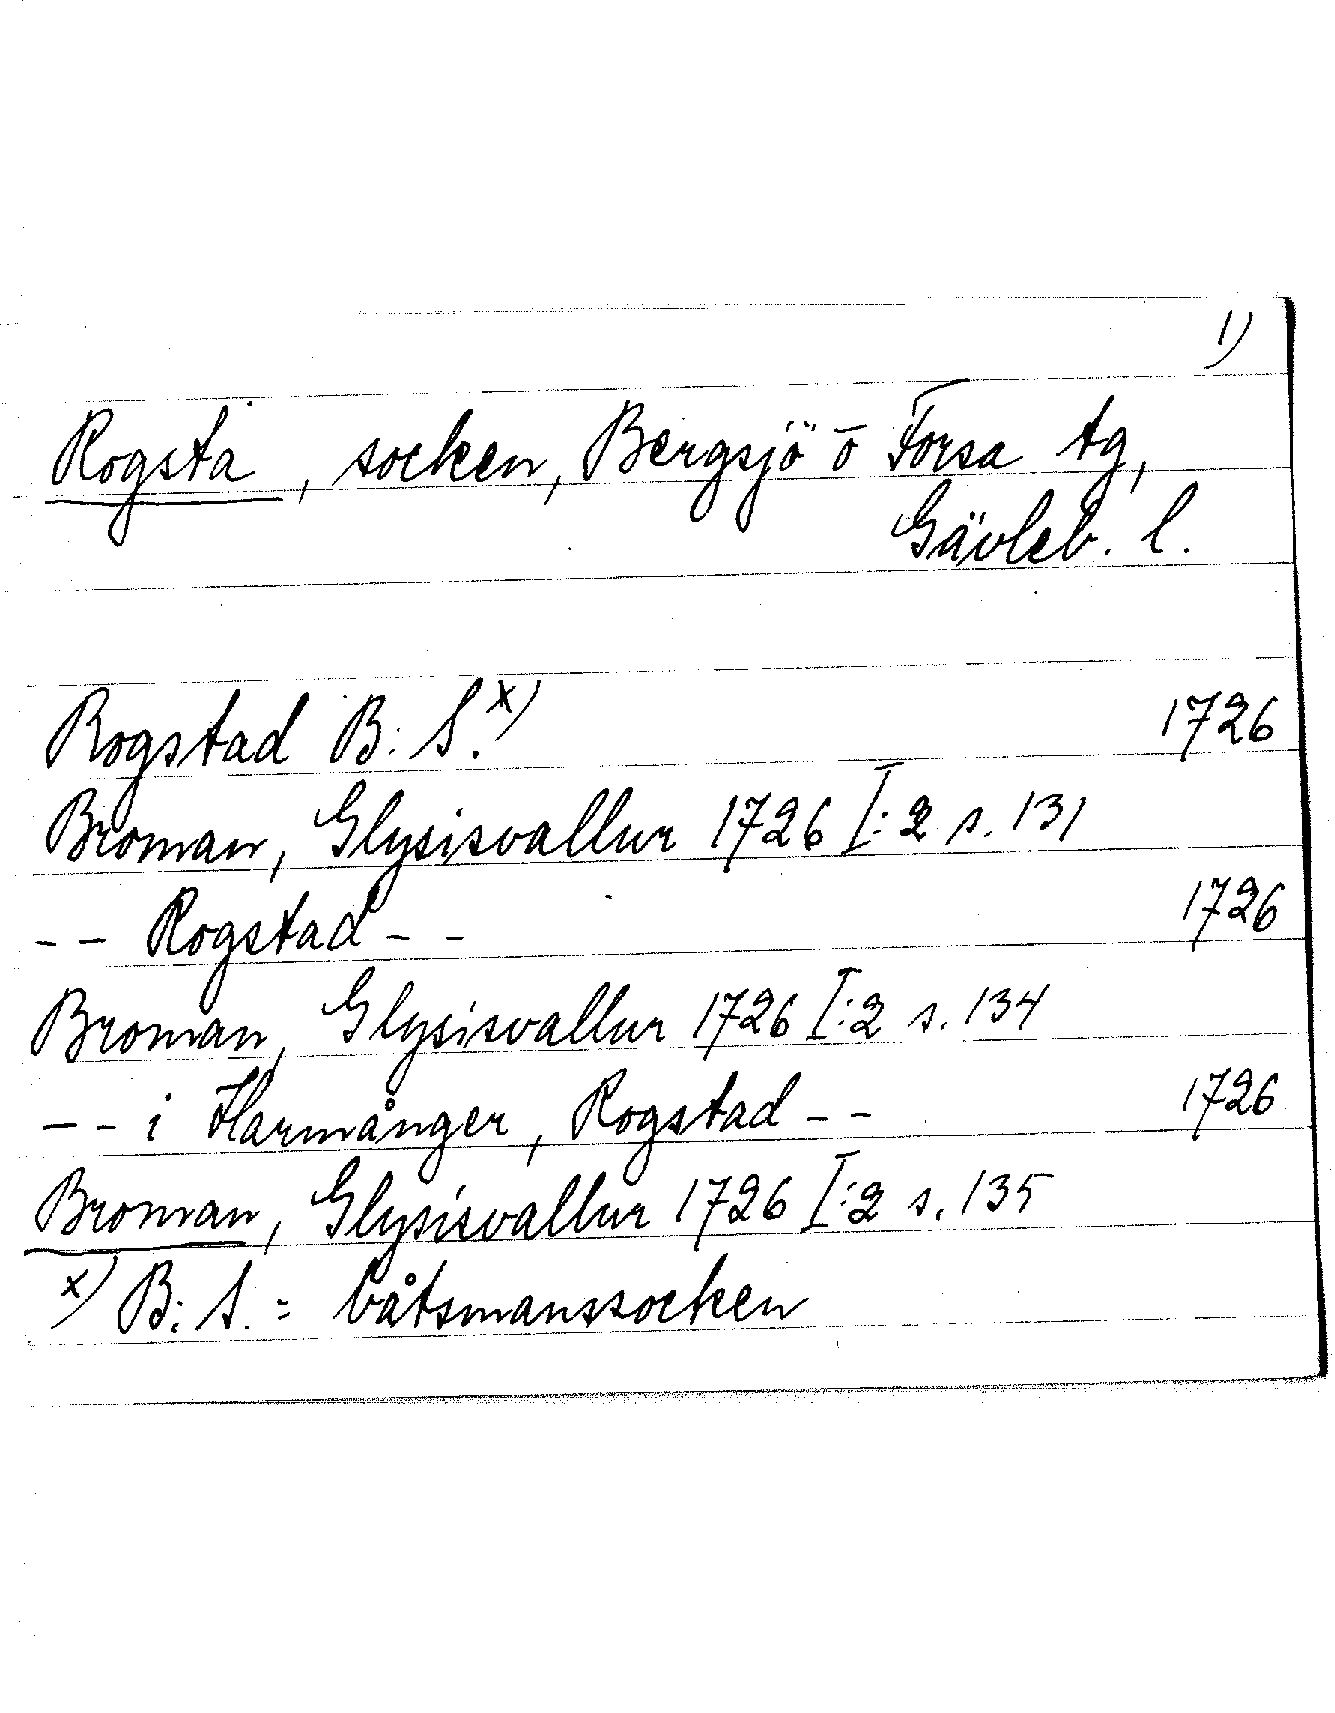 1)
Rogsta, socken, Bergsjö o Forsa tg,
Gävleb. l.
Rogstad B: S.x) 1726
Broman, Glysisvallur 1726 I:2 s. 131
-- Rogstad -- 1726
Broman, Glysisvallur 1726 I:2 s. 134
-- i Harmånger, Rogstad -- 1726
Broman, Glysisvallur 1726 I:2 s. 135
x) B: S. = båtsmanssocken